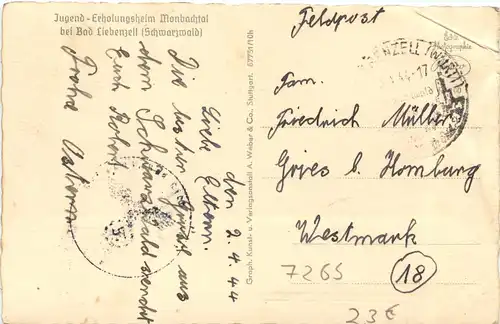 Jugend-Erholungsheim Monbachtal
bei Bad Liebenzell (Schwarzwald)
den 2.4.44
Liebe Eltern.
Die besten Grüße aus
dem Schwarzwald sendet
Euch Robert.
Frohe Ostern
Graph. Kunst- u. Verlagsanstalt A. Weber & Co., Stuttgart. 67751/10h
Feldpost
Echte Photographie
ENZELL (WÜRTT)
.44-17
Fam.
Friedrich Müller
Gries b/ Homburg
Westmark
7265
18
23€